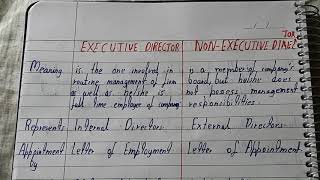 TOP
EXECUTIVE DIRECTOR NON-EXECUTIVE DIREC
Meaning is the one involved in is a member of company's
routine management of firm board, but he/she does
as well as he/she is not posses management
full time employee of company responsibilities.
Represents Internal Directors External Directors
Appointment Letter of Employment Letter of Appointment
by